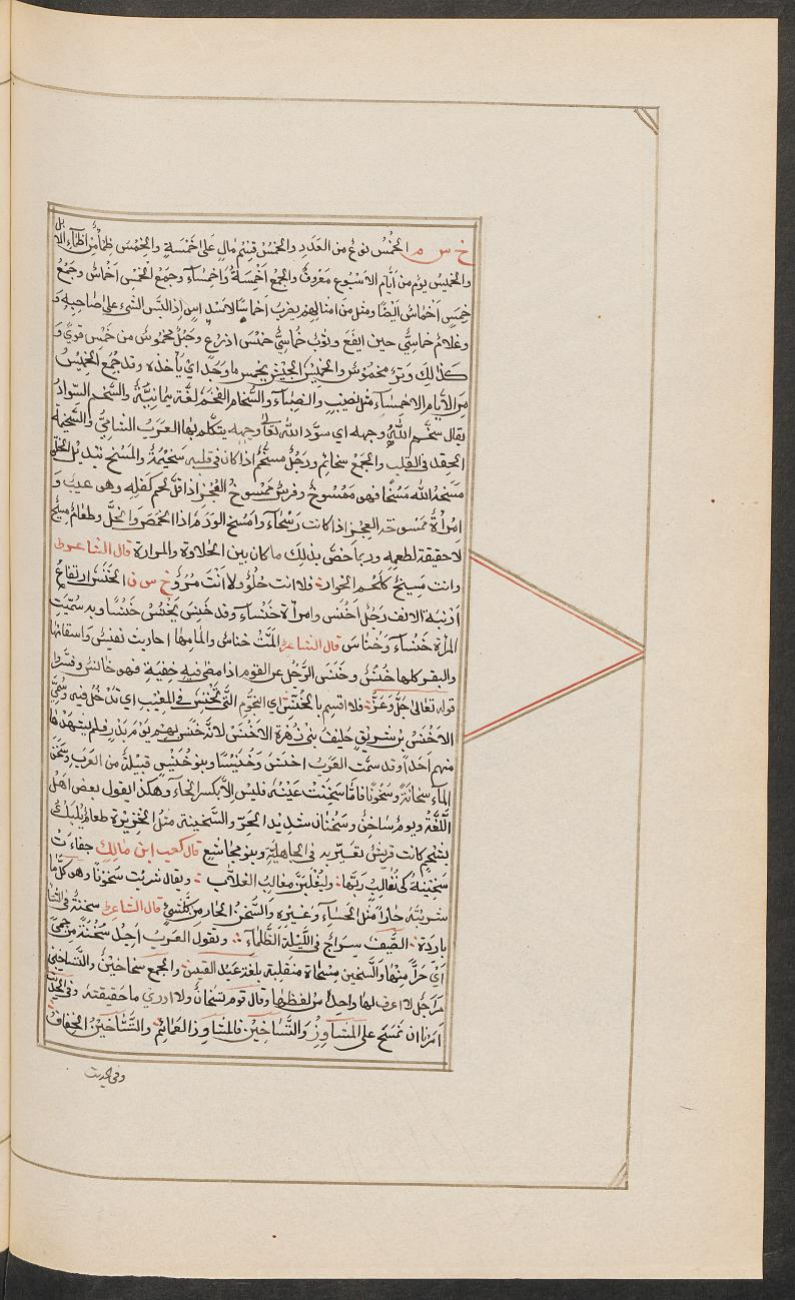 خ س م الخُمْس نوع من العَدَدِ والخمسُ قسم مال على خَمْسَةٍ والخِمْسَ ظِمْأ مِن اظماء الابل
والخميس يوم من ايام الاسْبُوع مَعْرُوف والجمع اخْمسَةٌ واخْمسَاء وجمع الخمس اخْماسٌ وجَمْعُ
خِمسٍ اخماس ايضا ومثل من امثالهم يضرب اخماسًا لاسداس اذا لبّس الشيء على صاحبه و
وغلام خماسيّ حين ايفع وثوب خُماسيّ خمس اذرع وحَبْلٌ مخموس من خمس قُوًى و
كذلك وتر مخموس والخميس الجيش يخمس ما وجد اي يأخذه وقد جمع الخميس
من الأيام الاخمساء مثل نصيب وانصباء والسُّخام الفحم لغة يمانيّة والسَّخَم السّوادُ
يقال سخّم الله وجهه اي سوّد الله تعالى وجهه يتكلم بها العرب الشاميّ والسَّخِيمة
الحِقد في القلب والجمع سخائم ورجل مسخَّم اذا كان في قلبه سَخيمةٌ والمَسْخ تبديل الخلق
مَسَخَهُ الله مَسْخًا فهو مَمْسُوخٌ وفرس ممسوخ العجز اذا قلّ لحم كفله وهو عيب و
امرأة ممسوخة العجز اذا كانت رَسْحاء وامسخ الورم اذا الحمصَ وانحلّ وطعامٌ مسيخ
لا حقيقة لطعمه وربما خصّ بذلك ما كان بين الحلاوة والمرارة قال الشاعر
وانت مسيخ كلحم الحوار فلا انت حُلْوٌ ولا انْتَ مُرّ و خ س ن الخَنَسُ ارتفاعُ
اَرْنَبَة الانف رجل اخْنَس وامرأة خَنْساء وقد خَنِسَ يَخْنَسُ خَنَسًا وبه سُمّيَتِ
المرأة خَنْسَاءَ وخُناسَ قال الشاعر المّت خناس والمامها احاديث نفس واسقامها
والبقر كلها خُنْسٌ وخَنَسَ الرّجُل عن القوم اذا مضى فيه خفية فهو خانس وفسّروا
قوله تعالى جَلّ وعَزّ فلا اقسم بالخُنَّسِ اي النجوم التي تخنس في المغيب اي تدخل فيه وسُمّي
الاخنس بن شريق حَلِيف بني زهرة الاخنس لانه خَنَس بهم يوم بدر فلم يشهدها
منهم احَدٌ وقد سمّت العَرَب اخنس وخُنَيْسًا وبنو خُنَيْسٍ قبيلة من العرب وسَخُنَ
الماء سخانةً وسخونًا فامّا سَخِنَتْ عَيْنُه فليس إلا بكسر الخاء وهكذا يقول بعض اهل
اللّغة ويوم ساخن وسَخْنان شديد الحر والسَّخينة مثل الخزيرة طعام يُلبك
بشحم كانت قريش تعيّر به في الجاهليّة وبنو مجاشع قال كعب ابن مالك جفاءت
سَخِينة كي تغالب رَبَّها وليُغْلَبَنّ مغالب الغلاب ويقال شربت سخونًا وهو كلّ ما
شربته حارًا مثل الحساء وغيره والسُّخْن الحار من كل شيء قال الشاعر سخنةٌ في الشتا
باردة الصَّيف سراج في اللّيلة الظلماء وتقول العرب اجد سَخْنةً من حمّى
اي حَرًّا منها والسِّخين مِسْحاة منقلبة بلغة عبد القيس والجمع سخاخين والتَّساخين
مَراجل لا اعرف لها واحدًا من لفظها وقال قوم تسخان ولا ادري ما حقيقته وفي الحديث
اَمَرَنا ان نمسح على المشاوِذِ والتَّساخين فالمشاوذ العمائم والتساخين الخِفافُ
وفي الحديث